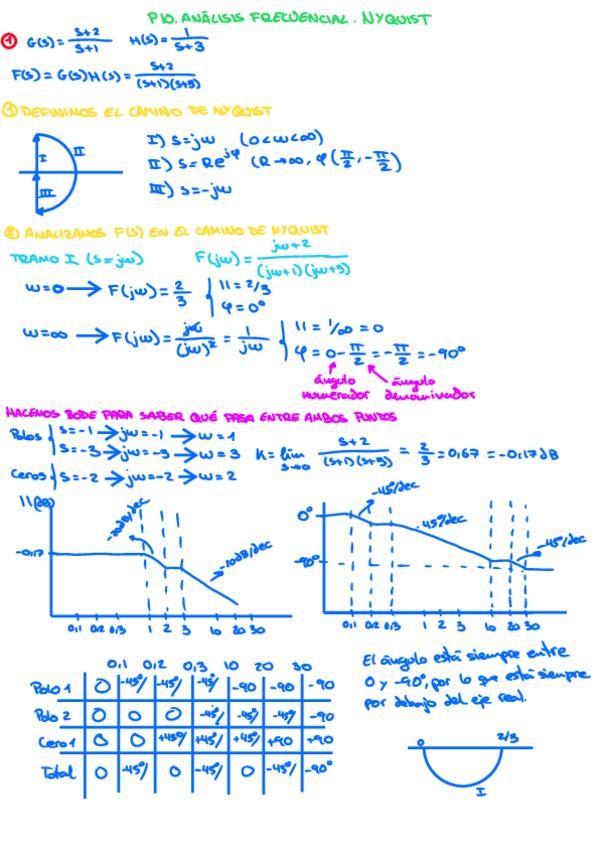 P10. ANÁLISIS FRECUENCIAL. NYQUIST
① G(s) = s+2 / s+1    H(s) = 1 / s+3
F(s) = G(s)H(s) = s+2 / (s+1)(s+3)
① DEFINIMOS EL CAMINO DE NYQUIST
I
II
III
I) s=jω (0<ω<∞)
II) s=Re^jφ (R→∞, φ(π/2, -π/2)
III) s=-jω
② ANALIZAMOS F(s) EN EL CAMINO DE NYQUIST
TRAMO I (s=jω)    F(jω) = jω+2 / (jω+1)(jω+3)
ω=0 → F(jω) = 2/3 { || = 2/3
φ = 0°
ω=∞ → F(jω) = jω / (jω)² = 1 / jω { || = 1/∞ = 0
φ = 0 - π/2 = -π/2 = -90°
ángulo numerador
ángulo denominador
HACEMOS BODE PARA SABER QUÉ PASA ENTRE AMBOS PUNTOS
Polos { s=-1 → jω=-1 → ω=1
s=-3 → jω=-3 → ω=3
K = lim s→0 s+2 / (s+1)(s+3) = 2/3 = 0,67 = -0,17dB
Ceros { s=-2 → jω=-2 → ω=2
||(dB)
-0,17
-20dB/dec
-20dB/dec
0,1 0,2 0,3 1 2 3 10 20 30
0°
-90°
-45°/dec
-45°/dec
-45°/dec
0,1 0,2 0,3 1 2 3 10 20 30
0,1 0,2 0,3 10 20 30
Polo 1 0 -45°/ -45°/ -45°/ -90 -90 -90
Polo 2 0 0 0 -45°/ -45°/ -45°/ -90
Cero 1 0 0 +45°/ +45°/ +45°/ +90 +90
Total 0 -45°/ 0 -45°/ 0 -45°/ -90°
El ángulo está siempre entre
0 y -90°, por lo que está siempre
por debajo del eje real.
0 2/3
I